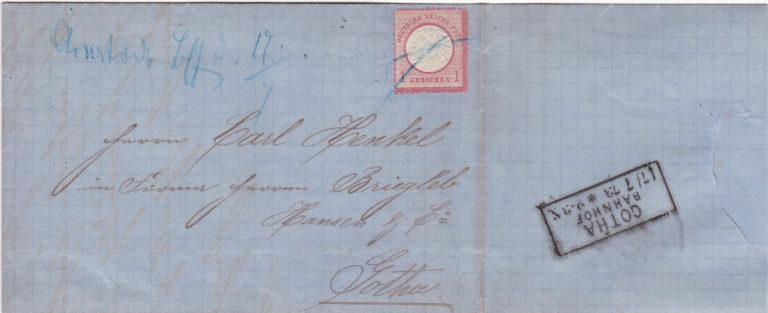 Arnstadt 17
/7
DEUTSCHE REICHS POST
1 GROSCHEN 1
Herrn Carl Henkel
in Firma Herrn Briegleb
Hansen & Co
Gotha
GOTHA
BAHNHOF
17/7 73 * 2-3 N